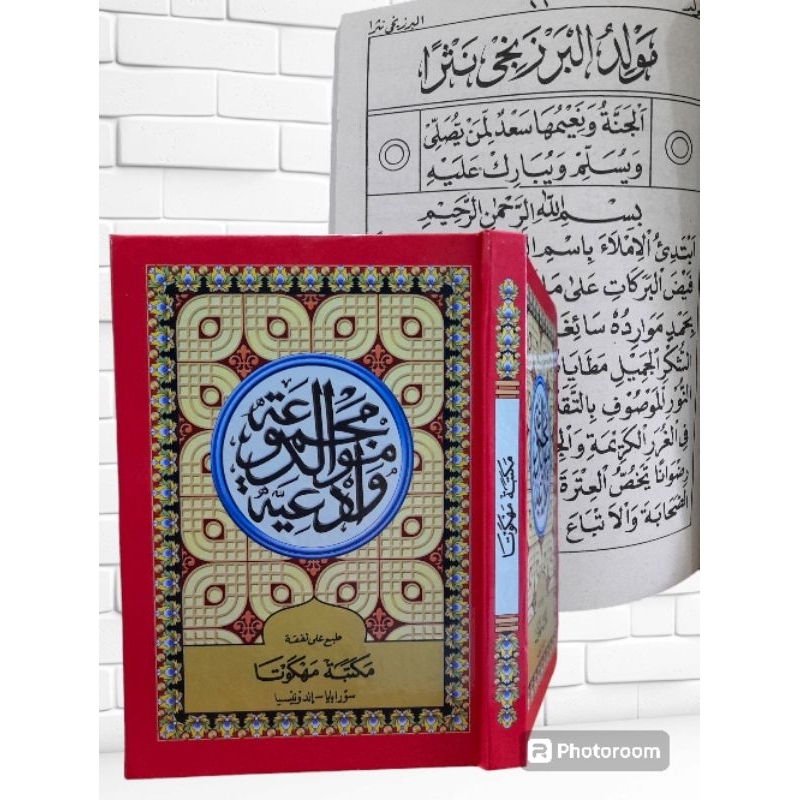 البرزنجى نثرا
١١
مَوْلِدُ الْبَرْزَنْجِى نَثْرًا
اَلْجَنَّةُ وَنَعِيْمُهَا سَعْدٌ لِمَنْ يُصَلِّى
وَيُسَلِّمُ وَيُبَارِكُ عَلَيْهِ
بِسْمِ اللهِ الرَّحْمٰنِ الرَّحِيْمِ
اَبْتَدِئُ الْاِمْلَاءَ بِاسْمِ
فَيْضَ الْبَرَكَاتِ عَلٰى مَا
بِحَمْدٍ مَوَارِدُهُ سَائِغَ
الشُّكْرِ الْجَمِيْلِ مَطَايَا
النُّوْرِ الْمَوْصُوْفِ بِالتَّقَ
فِى الْغُرَرِ الْكَرِيْمَةِ وَالْجِ
رِضْوَانًا يَخُصُّ الْعِتْرَةَ
الصَّحَابَةَ وَالْاَتْبَاعَ
مَجْمُوْعَةُ
مَوَالِدَ
وَاَدْعِيَّةٍ
طبع على نفقة
مَكْتَبَة مَهْكَوْتَا
سورابايا - إندونيسيا
مَكتبَة مَهْكوْتَا
Photoroom